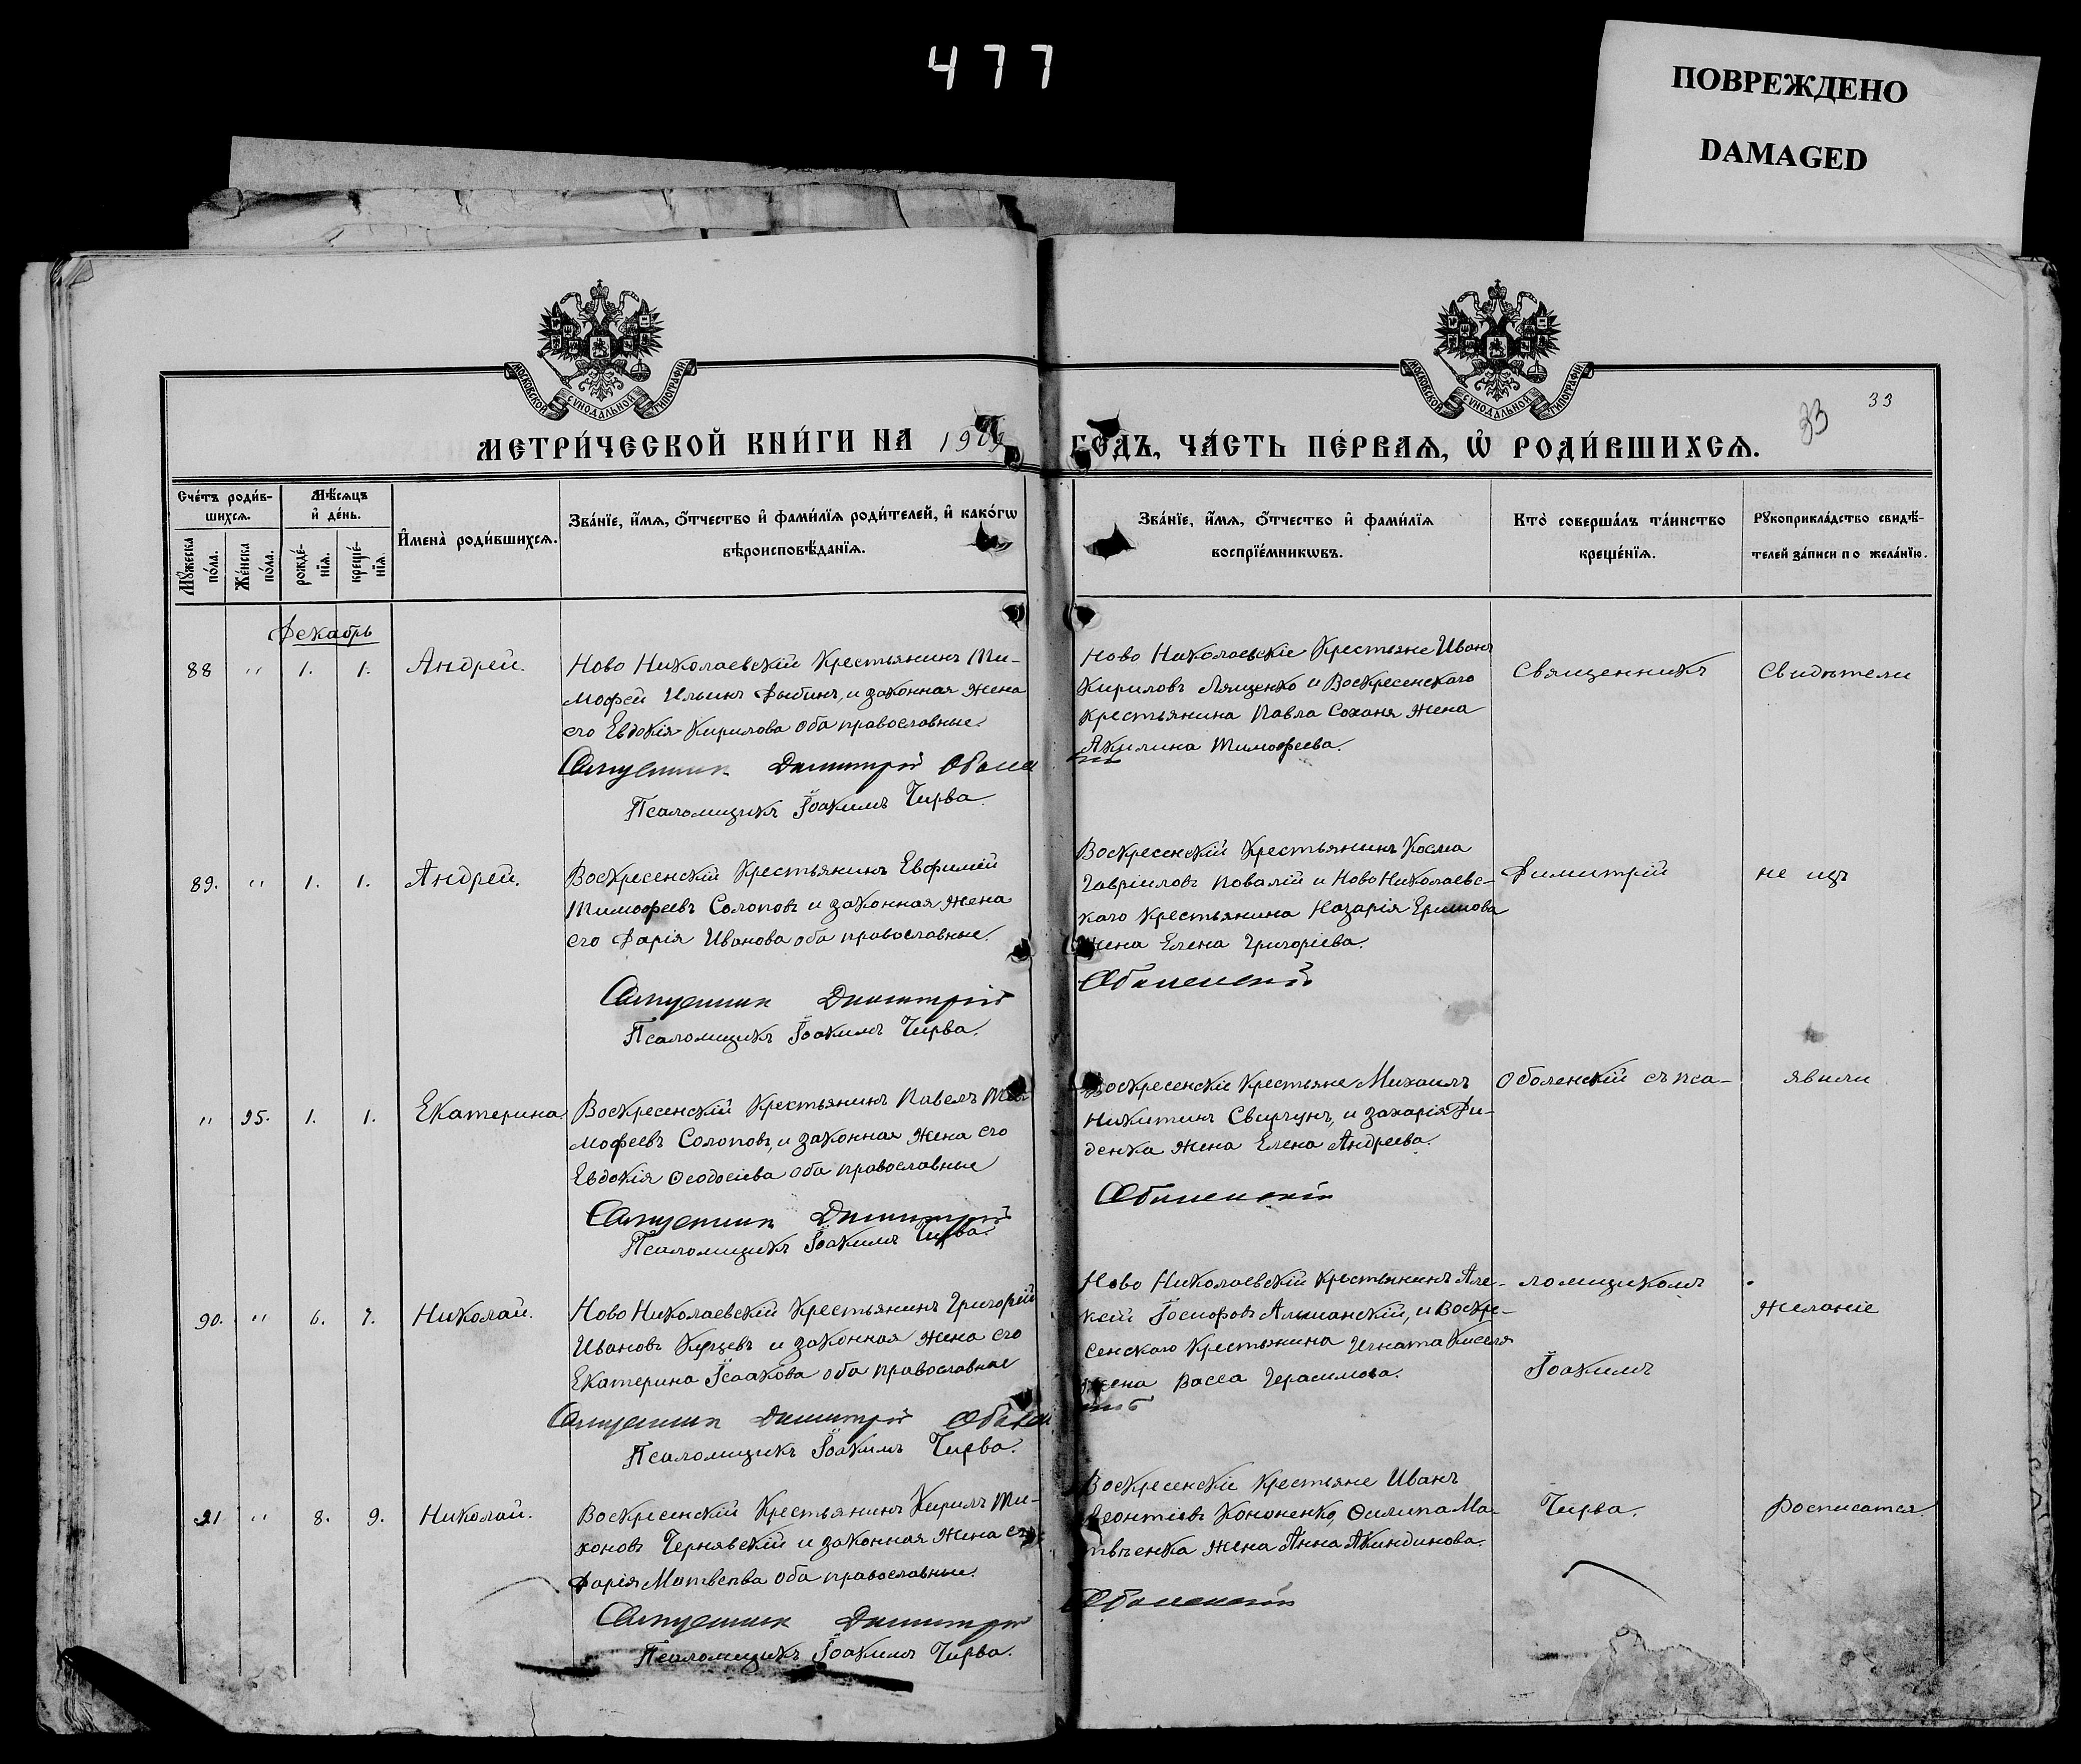 477
ПОВРЕЖДЕНО
DAMAGED
МОСКОВСКОЙ СѴНОДАЛЬНОЙ ТИПОГРАФІИ
МОСКОВСКОЙ СѴНОДАЛЬНОЙ ТИПОГРАФІИ
33
33
МЕТРИ́ЧЕСКОЙ КНИ́ГИ НА 1909 ГОДЪ, ЧА́СТЬ ПЕ́РВАѦ, Ѡ҆ РОДИ́ВШИХСѦ.
Сче́тъ роди́в-
шихсѧ.
Мѣ́сѧцъ
и҆ де́нь.
Мꙋ́жеска по́ла.
Же́нска по́ла.
рожде́-нїѧ.
креще́-нїѧ.
И҆мена̀ роди́вшихсѧ.
Зва́нїе, и҆́мѧ, ѻ҆́тчество и҆ фами́лїѧ роди́телей, и҆ како́гѡ
вѣроисповѣ́данїѧ.
Зва́нїе, и҆́мѧ, ѻ҆́тчество и҆ фами́лїѧ
воспрїе́мникѡвъ.
Кто̀ соверша́лъ та́инство
креще́нїѧ.
Рꙋкоприкла́дство свидѣ́-
телей за́писи по жела́нїю.
Декабрь
88 " 1. 1. Андрей.
Ново Николаевскій Крестьянинъ Ти-
мофей Ильинъ Дыбинъ, и законная жена
его Евдокія Кирилова оба православные.
Священник Димитрій Оболен
Псаломщикъ Іоакимъ Чирва.
Ново Николаевскіе Крестьяне Иванъ
Кириловъ Лященко и Воскресенскаго
крестьянина Павла Соханя жена
Акилина Тимофеева.
Священникъ
Свидѣтели
89. " 1. 1. Андрей.
Воскресенскій Крестьянинъ Евфимій
Тимофеевъ Солоповъ и законная жена
его Дарія Иванова оба православные.
Священник Димитрій
Псаломщикъ Іоакимъ Чирва.
Воскресенскій Крестьянинъ Косма
Гавріиловъ Повалій и Ново Николаевс-
каго Крестьянина Назарія Еримова
жена Елена Григоріева.
Оболенскій
Димитрій
не изъ
" 95. 1. 1. Екатерина
Воскресенскій Крестьянинъ Павелъ Ти-
мофеевъ Солоповъ, и законная жена его
Евдокія Ѳеодосіева оба православные
Священник Димитрій
Псаломщикъ Іоакимъ Чирва.
Воскресенскіе Крестьяне Михаилъ
Никитинъ Свиргунъ, и Захарія Ди-
денка жена Елена Андреева.
Оболенскій
Оболенскій съ пса-
явили
90. " 6. 7. Николай.
Ново Николаевскій Крестьянинъ Григорій
Ивановъ Купцевъ и законная жена его
Екатерина Ісаакова оба православные
Священник Димитрій Оболен
Псаломщикъ Іоакимъ Чирва.
Ново Николаевскій Крестьянинъ Але-
ксій Іосифовъ Алманскій, и Воскре-
сенскаго Крестьянина Игната Киселя
жена Васса Герасимова.
ломщикомъ
Іоакимъ
желаніе
91 " 8. 9. Николай.
Воскресенскій Крестьянинъ Кирилъ Ти-
хоновъ Чернявскій и законная жена его
Дарія Матвеева оба православные.
Священник Димитрій
Псаломщикъ Іоакимъ Чирва.
Воскресенскіе Крестьяне Иванъ
Леонтіевъ Кононенко, Филипа Ма-
твѣенка жена Анна Акиндинова.
Оболенскій
Чирва.
Росписатся.